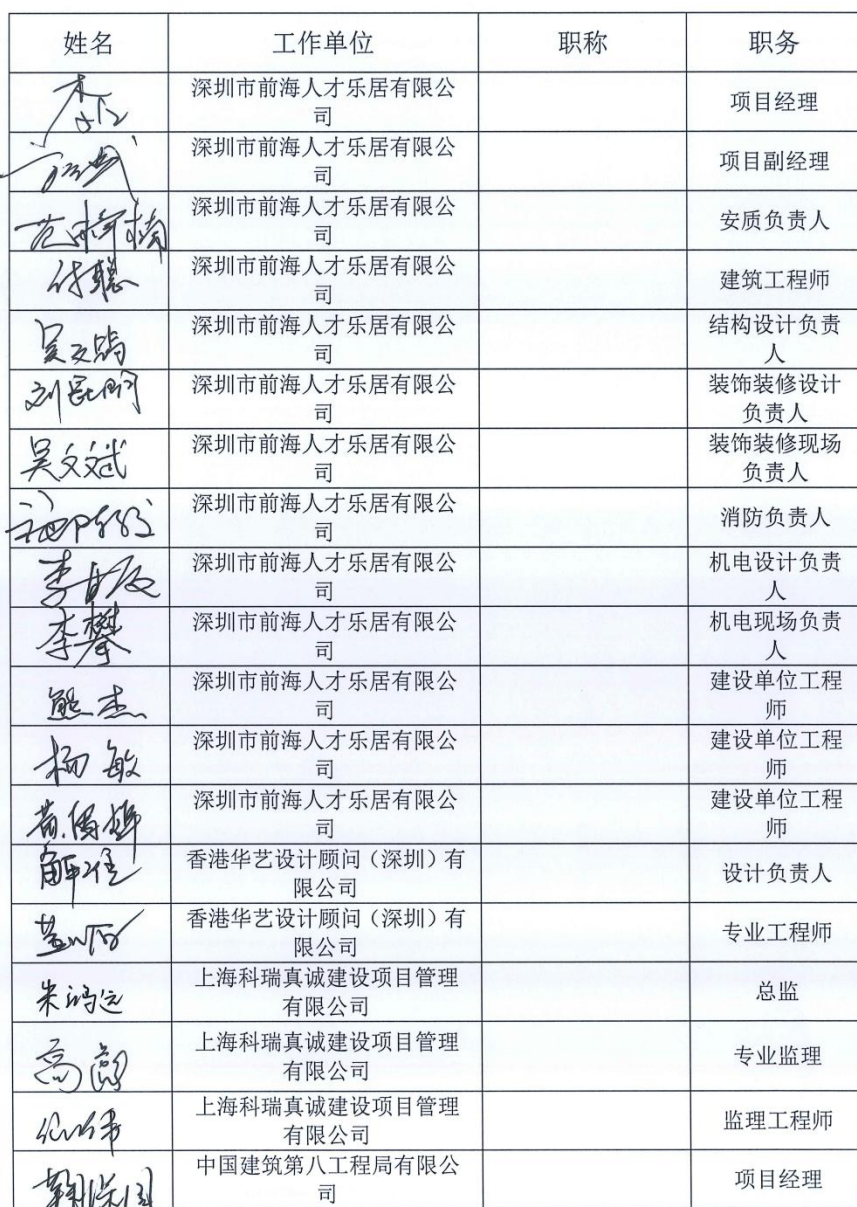 姓名 工作单位 职称 职务
深圳市前海人才乐居有限公
司
项目经理
深圳市前海人才乐居有限公
司
项目副经理
深圳市前海人才乐居有限公
司
安质负责人
付聪
深圳市前海人才乐居有限公
司
建筑工程师
深圳市前海人才乐居有限公
司
结构设计负责
人
深圳市前海人才乐居有限公
司
装饰装修设计
负责人
吴文斌
深圳市前海人才乐居有限公
司
装饰装修现场
负责人
深圳市前海人才乐居有限公
司
消防负责人
深圳市前海人才乐居有限公
司
机电设计负责
人
李攀
深圳市前海人才乐居有限公
司
机电现场负责
人
熊杰
深圳市前海人才乐居有限公
司
建设单位工程
师
杨敏
深圳市前海人才乐居有限公
司
建设单位工程
师
深圳市前海人才乐居有限公
司
建设单位工程
师
香港华艺设计顾问（深圳）有
限公司
设计负责人
香港华艺设计顾问（深圳）有
限公司
专业工程师
朱鸿运
上海科瑞真诚建设项目管理
有限公司
总监
上海科瑞真诚建设项目管理
有限公司
专业监理
上海科瑞真诚建设项目管理
有限公司
监理工程师
中国建筑第八工程局有限公
司
项目经理